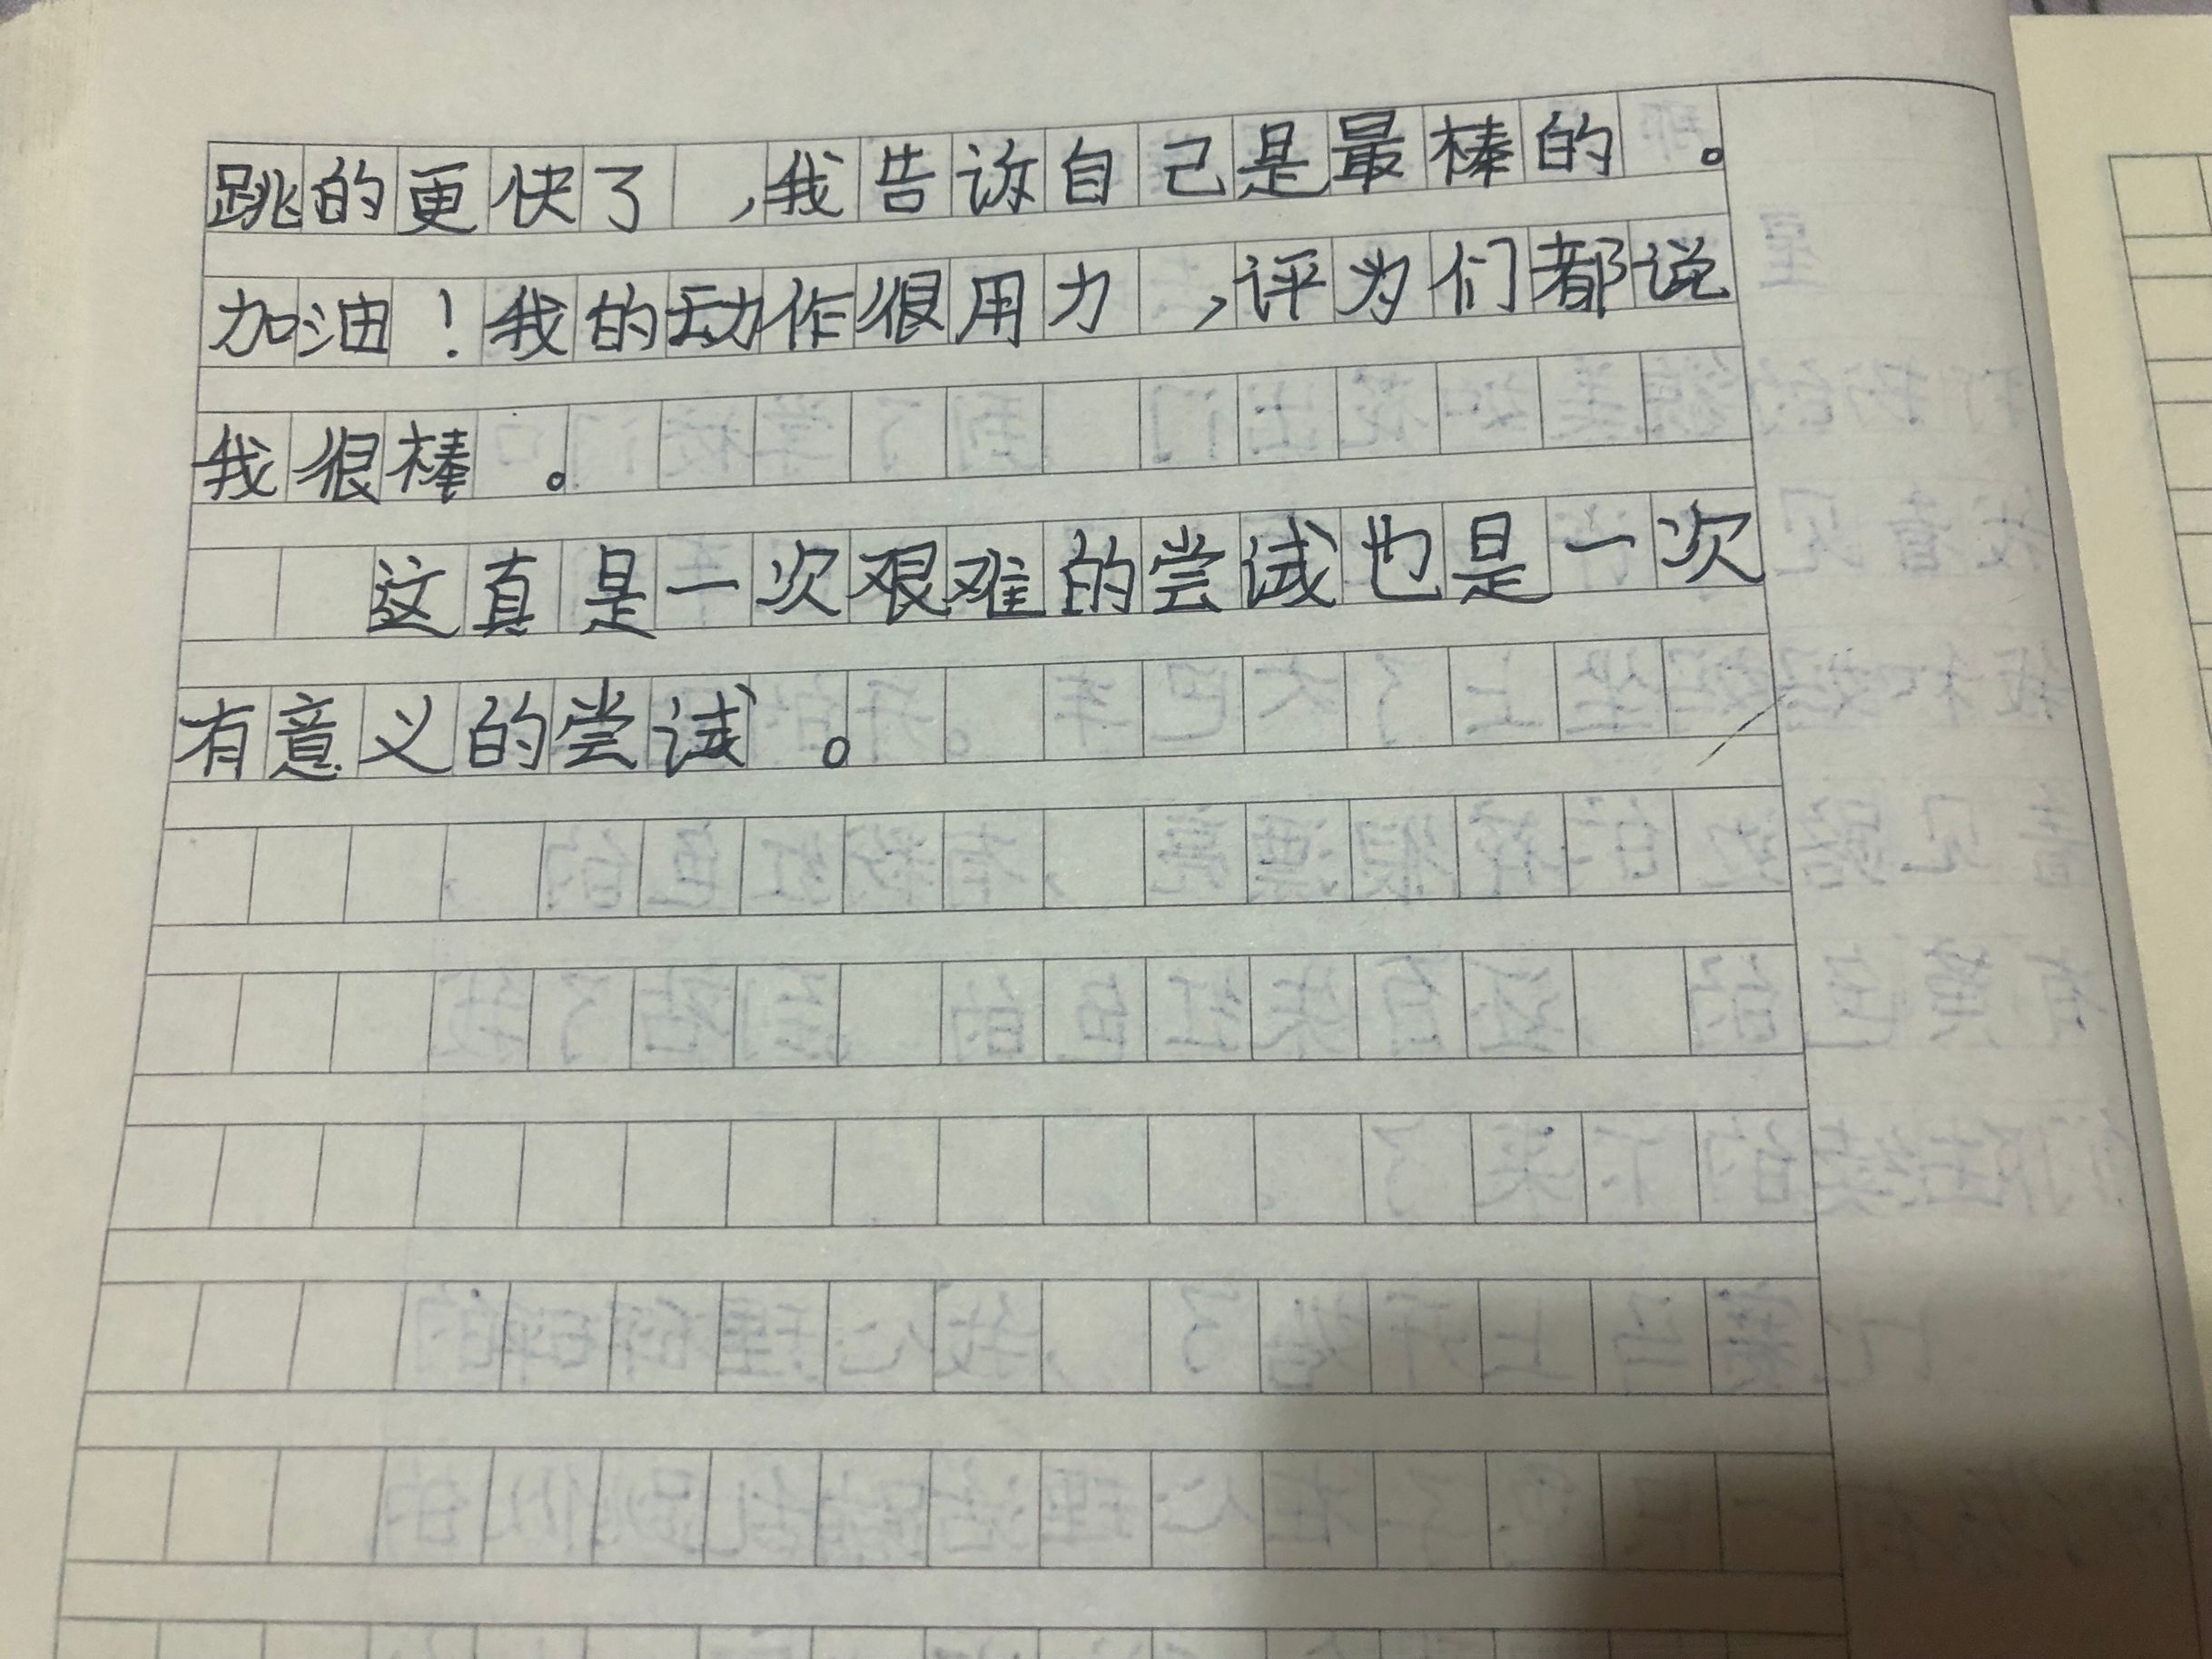 跳的更快了,我告诉自己是最棒的。
加油!我的动作很用力,评为们都说
我很棒。
这真是一次艰难的尝试也是一次
有意义的尝试。